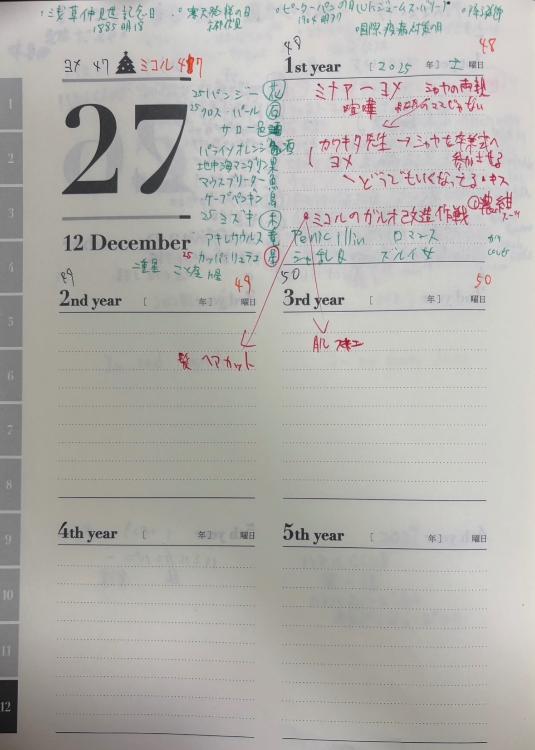 ・浅草仲見世記念日
1885 明18
・寒天発祥の日
京都伏見
・ピーターパンの日
1904 明37
・国際疫病対策の日
48
48
ヨメ 47 ミコル 47
27
12 December
25 パンジー 花
25 クロス・パール 石
サロー 色
パライソオレンジ 酒
地中海マンダリン 果
マウスブリーダー 魚
ケープペンギン 鳥
25 ミズキ 木
アキレウケルス 竜
25 カッパ・リュラエ 星
二重星 こと座
1st year [ 2025 年] 土 曜日
ミナァーヨメ シャヤの両親
喧嘩
カワキタ先生→シャヤを卒業式へ
ヨメ 参加させる
どうでもいくなってる・キス
ミコルのガルオ改造作戦 ①濃紺スーツ
Penicillin ロマンス
ズルイ女
49
49
2nd year [ 年] 曜日
髪 ヘアカット
50
50
3rd year [ 年] 曜日
肌
4th year [ 年] 曜日
5th year [ 年] 曜日
1
2
3
4
5
6
7
8
9
10
11
12